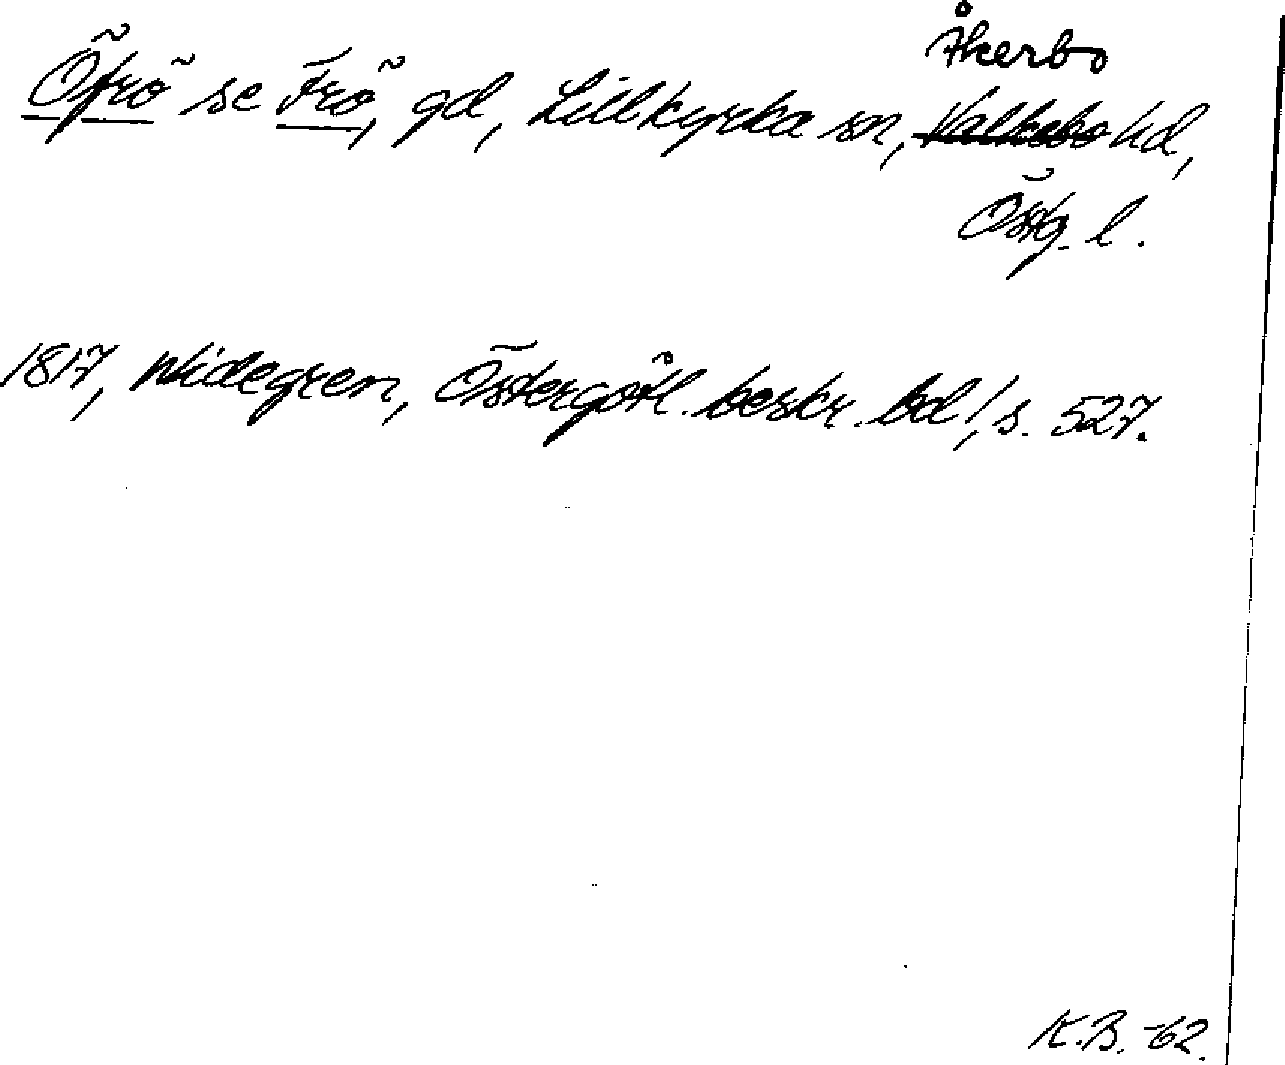 Åkerbo
Öfrö se Frö, gd, Lillkyrka sn, Valkebo hd,
Östg. l.
1817, Widegren, Östergötl. beskr. bd 1, s. 527.
K.B. -62.